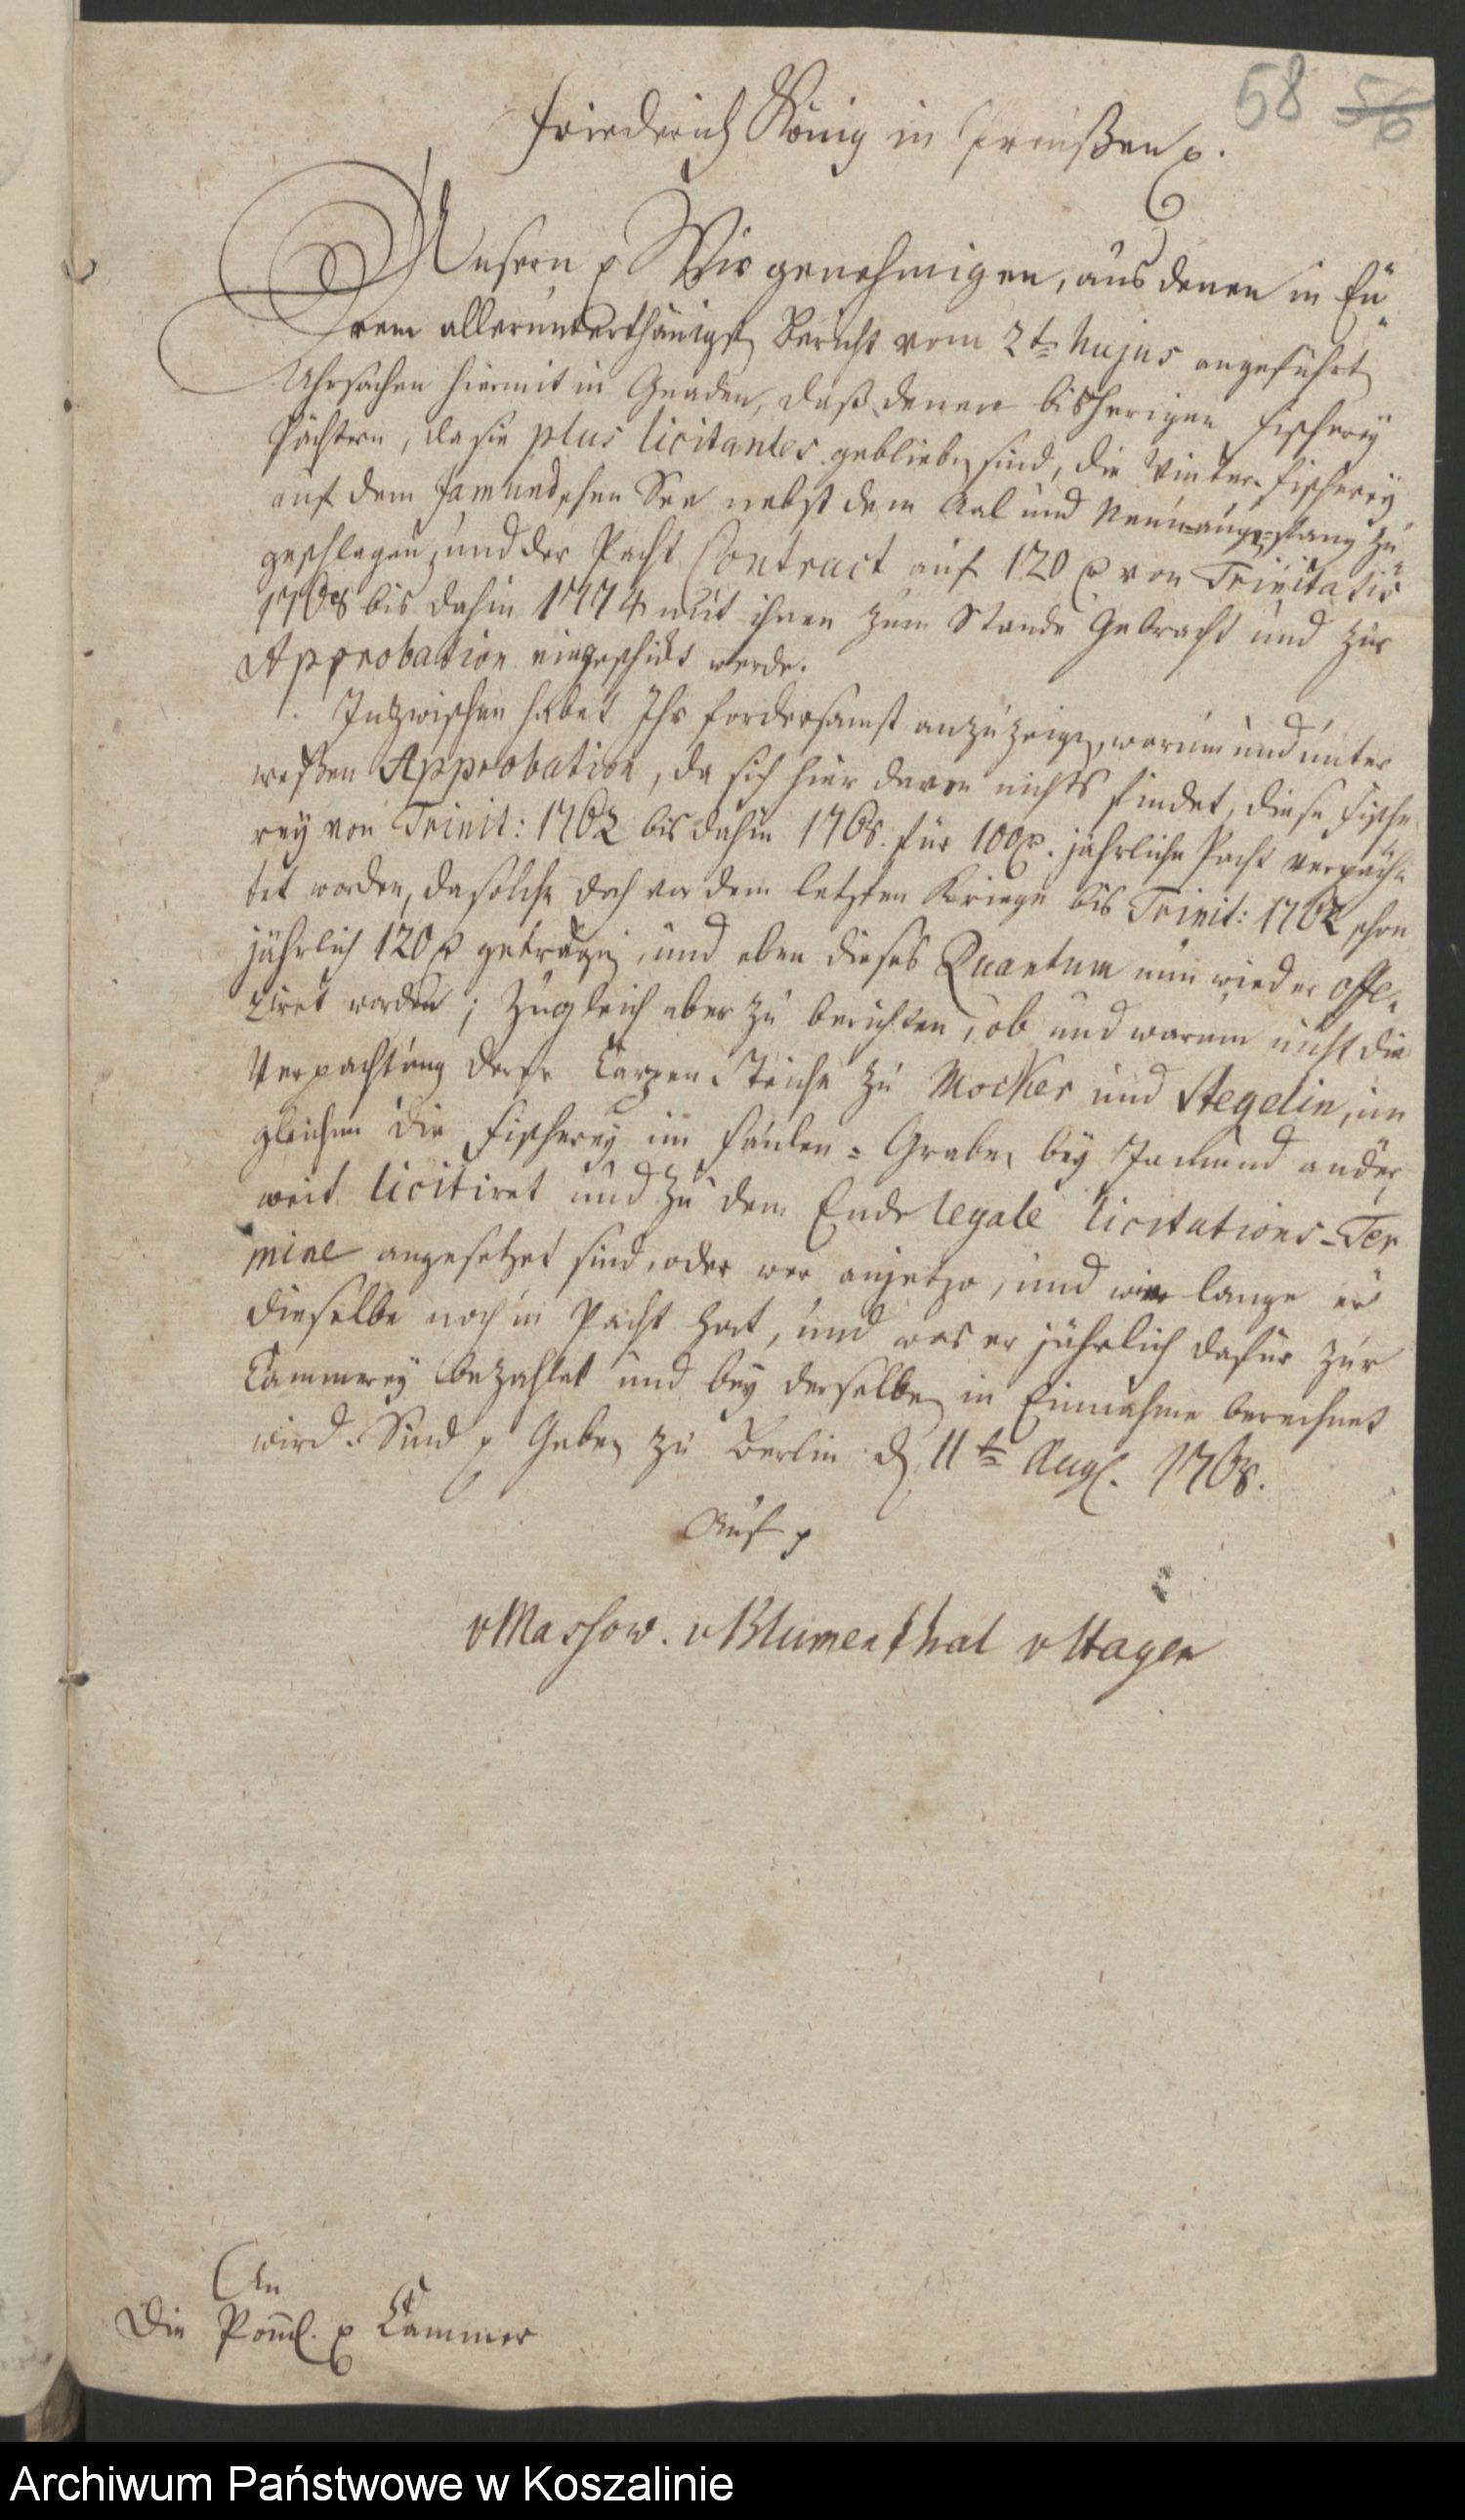 58 56
Friederich König in Preußen p.
Unsern p Wir genehmigen, aus denen in Eu-
rem allerunterthänigst Bericht vom 2t. hujus angeführt
Uhrsachen hiermit in Gnaden, daß denen bisherigen Fischerey
Pächtern, da sie plus licitantes geblieben sind, die Winter-Fischerey
auf dem Jamundschen See nebst dem Aal und Neunaugen-fang zu
geschlagen, und der Pacht Contract auf 120 rt von Trinitatis
1768 bis dahin 1774 mit ihnen zum Stande gebracht und zur
Approbation eingeschickt werde.
Inzwischen habet Ihr fordersamst anzuzeigen, warum und unter
weßen Approbation, da sich hier davon nichts findet, diese Fische-
rey von Trinit: 1762 bis dahin 1768. für 100 rt. jährliche Pacht verpach-
tet worden, da solche doch vor dem letzten Kriege bis Trinit: 1762 schon
jährlich 120 rt getragen, und eben dieses Quantum nun wieder offe-
riret worden; zugleich aber zu berichten, ob und warum nicht die
Verpachtung derer Carpen-Teiche zu Mocker und Stegelin, im
gleichen die Fischerey im faulen-Graben bey Jamund ander
weit licitiret und zu dem Ende legale licitations-Ter
mine angesetzet sind, oder wer anjetzo, und wie lange er
dieselbe noch in Pacht hat, und was er jährlich dafür zur
Cammerey bezahlet und bey derselben in Einnahme berechnet
wird. Sind p Geben zu Berlin d. 11t. Aug. 1768.
Auf p
v Massow. v Blumenthal v Hagen
An
die Poml. p Cammer
Archiwum Państwowe w Koszalinie